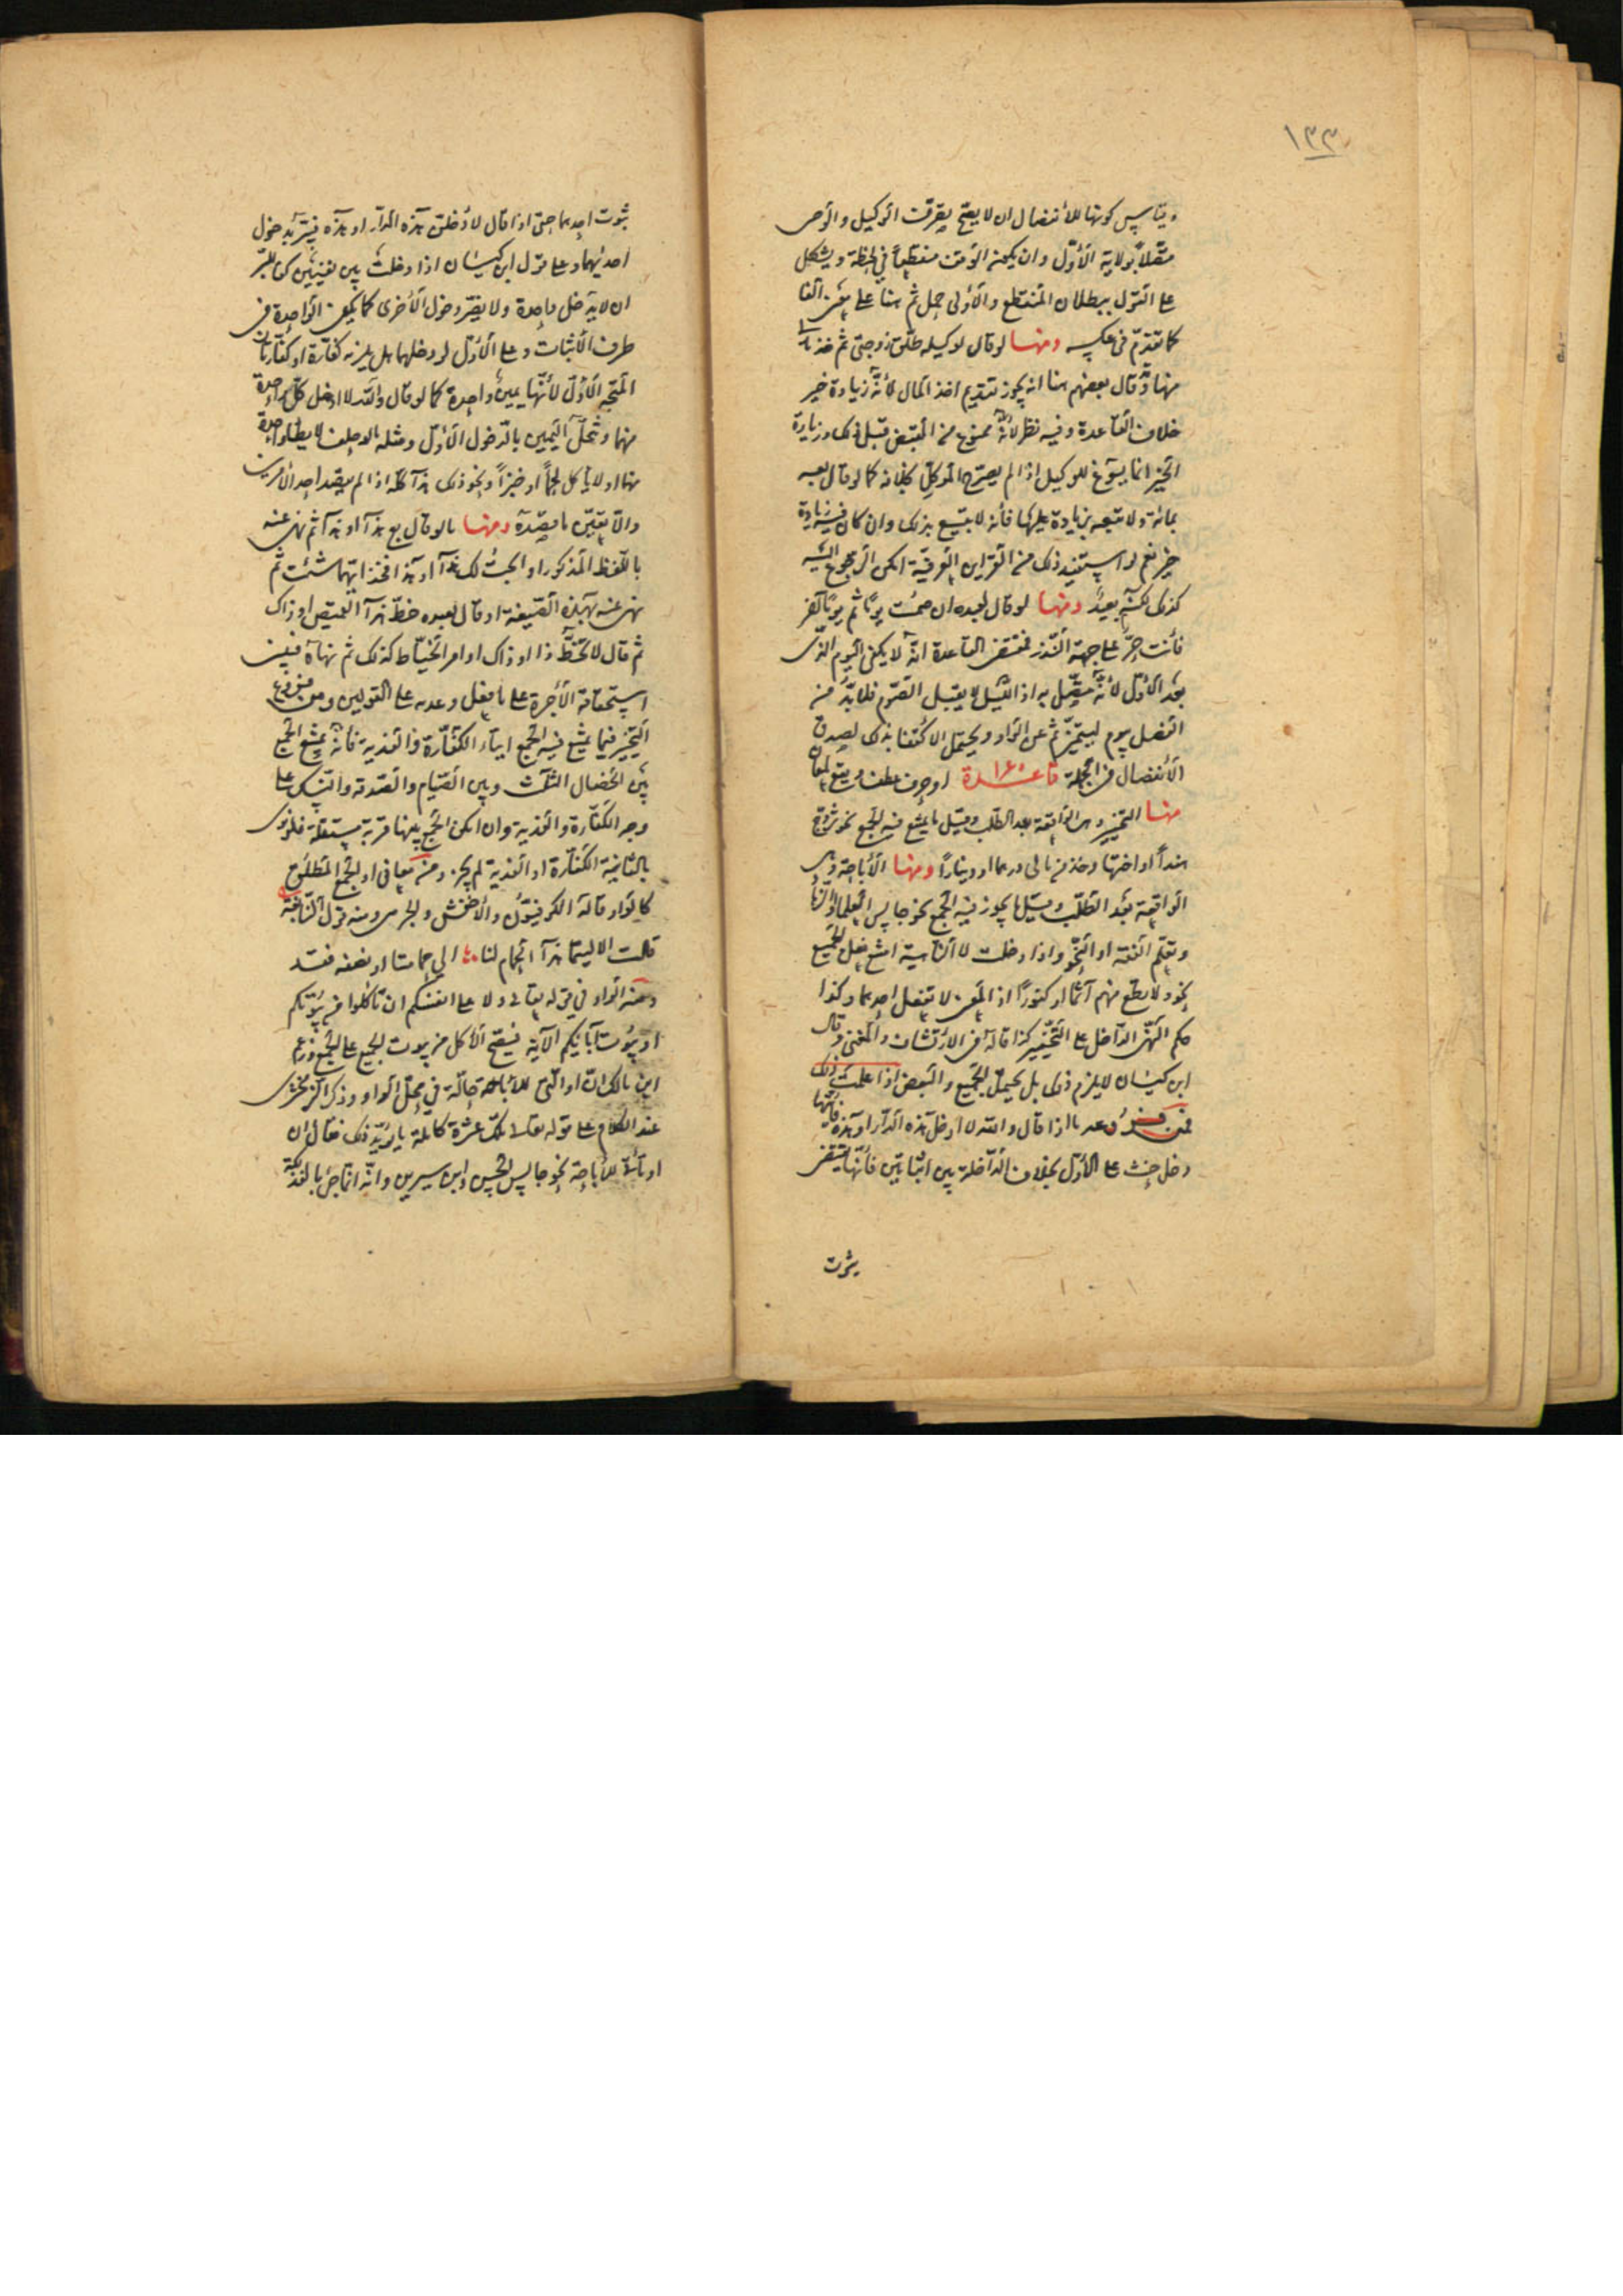 ١٣٣
وقياس كونها للأنفصال ان لا يصح تصرف الوكيل والوصى
متصلاً بولاية الأوّل وان يكون الوقف منقطعاً فى لحظة ويشكل
على القول ببطلان المنقطع والأولى حمل ثم هنا على معنى الفا
كما تقدّم فى عكسه ومنها لو قال لوكيله طلّق زوجتى ثم خذ مالى
منها وقال بعضهم هنا انه يجوز تقديم اخذ المال لأنّه زيادة خير
خلاف القاعدة وفيه نظر لأنّه ممنوع من القبض قبل ذلك وزيادة
الخير انما يسوّغ للوكيل اذا لم يصرّح الموكل بخلافه كما لو قال بعه
بمائة ولا تبعه بزيادة عليها فأنه لا يبيع بذلك وان كان فيه زيادة
خير نعم لو استفيد ذلك من القراين العرفيّة امكن الرجوع اليه
كذلك لكنّه بعيد ومنها لو قال لعبده ان صمت يومًا ثم يومًا آخر
فأنت حرّ على جهة النذر فمقتضى القاعدة انّه لا يكفى اليوم الذى
بعد الأوّل لأنّه متّصل به اذ الليل لا يقبل الصّوم فلا بدّ من
الفصل بيوم ليتميّز ثم عن الواو ويحتمل الاكتفا بذلك لصدق
الأنفصال فى الجملة قاعدة ١٤٥ او حرف عطف ويقع لمعان
منها التخيير وهى الواقعة بعد الطلب وقيل ما يمتنع فيه الجمع نحو تزوّج
هنداً او اختها وخذ من مالى درهما او ديناراً ومنها الأباحة وهى
الواقعة بعد الطلب وقيل ما يجوز فيه الجمع نحو جالس العلما او الزّهاد
وتعلم الفقه او النحو واذا دخلت لا الناهية امتنع فعل الجميع
نحو ولا تطع منهم آثمًا او كفورًا اذ المعنى لا تفعل احدهما وكذا
حكم النّهى الدّاخل على التّخيير كذا قاله فى الارتشاف والمغنى وقال
ابن كيسان لا يلزم ذلك بل يحتمل الجميع والبعض اذا علمت ذلك
فمن فروعه ما اذا قال والله لا ادخل هذه الدّار او هذه فأيتهما
دخل حنث على الأوّل بخلاف الدّاخلة بين اثباتين فأنّها تقتضى
ثبوت
ثبوت احدهما حتى اذا قال لأدخلنّ هذه الدّار او هذه فيبرّ بدخول
احديهما وعلى قول ابن كيسان اذا دخلت بين نفيين كفى للبرّ
ان لا يدخل واحدة ولا يضرّ دخول الأخرى كما يكفى الواحدة فى
طرف الأثبات وعلى الأوّل لو دخلهما هل يلزمه كفّارة او كفّارتان
المتّجه الأوّل لأنّها يمين واحدة كما لو قال والله لا ادخل كلّ واحدة
منهما وتنحلّ اليمين بالدخول الأوّل ومثله ما لو حلف لا يطأ واحدة
منهما او لا يأكل لحمًا او خبزاً ونحو ذلك هذا كلّه اذا لم يقصد احد الأمرين
والّا تعيّن ما قصده ومنها ما لو قال بع هذا او هذا ثم نهى عنه
باللّفظ المذكور او ابحت لك هذا او هذا فخذ ايّهما شئت ثم
نهى عنه بهذه الصّيغة او قال لعبده خط هذا القميص او ذاك
ثم قال لا تخط ذا او ذاك او امر الخيّاط كذلك ثم نهاه فيبنى
استحقاقه الأجرة على ما فعل وعدمه على القولين ومن فروع
التّخيير فيما يمتنع فيه الجمع ايتاء الكفّارة والفدية فأنّه يمتنع الجمع
بين الخصال الثلث وبين الصّيام والصّدقة والنّسك على
وجه الكفّارة والفدية وان امكن الجمع بينها قربة مستقلة فلو نوى
بالثانية الكفّارة او الفدية لم يجز ومن معانى او الجمع المطلق
كالواو قاله الكوفيّون والأخفش والجرمى ومنه قول النّابغة
قالت الا ليتما هذا الحمام لنا الى حمامتنا او نصفه فقد
ومنه الواو فى قوله تعالى ولا على انفسكم ان تأكلوا من بيوتكم
او بيوت آبائكم الآية فيصحّ الأكل من بيوت الجميع على الجمع وزعم
ابن مالك انّ او الّتى للأباحة حالّة فى محلّ الواو وذكر الزمخشرى
عند الكلام على قوله تعالى تلك عشرة كاملة ما يؤيّد ذلك فقال ان
او تأتى للأباحة نحو جالس الحسن وابن سيرين وانّه انّما جئ بالفذلكة